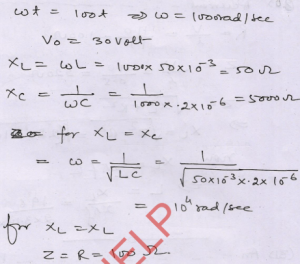 ωt = 100t ⇒ ω = 1000 rad/sec
V₀ = 30 Volt
X_L = ωL = 1000 × 50 × 10⁻³ = 50 Ω
X_C = 1/ωC = 1/(1000 × .2 × 10⁻⁶) = 5000 Ω
for X_L = X_C
= ω = 1/√(LC) = 1/√(50×10⁻³ × .2 × 10⁻⁶)
= 10⁴ rad/sec
for X_L = X_L
Z = R = 100 Ω.
HELP